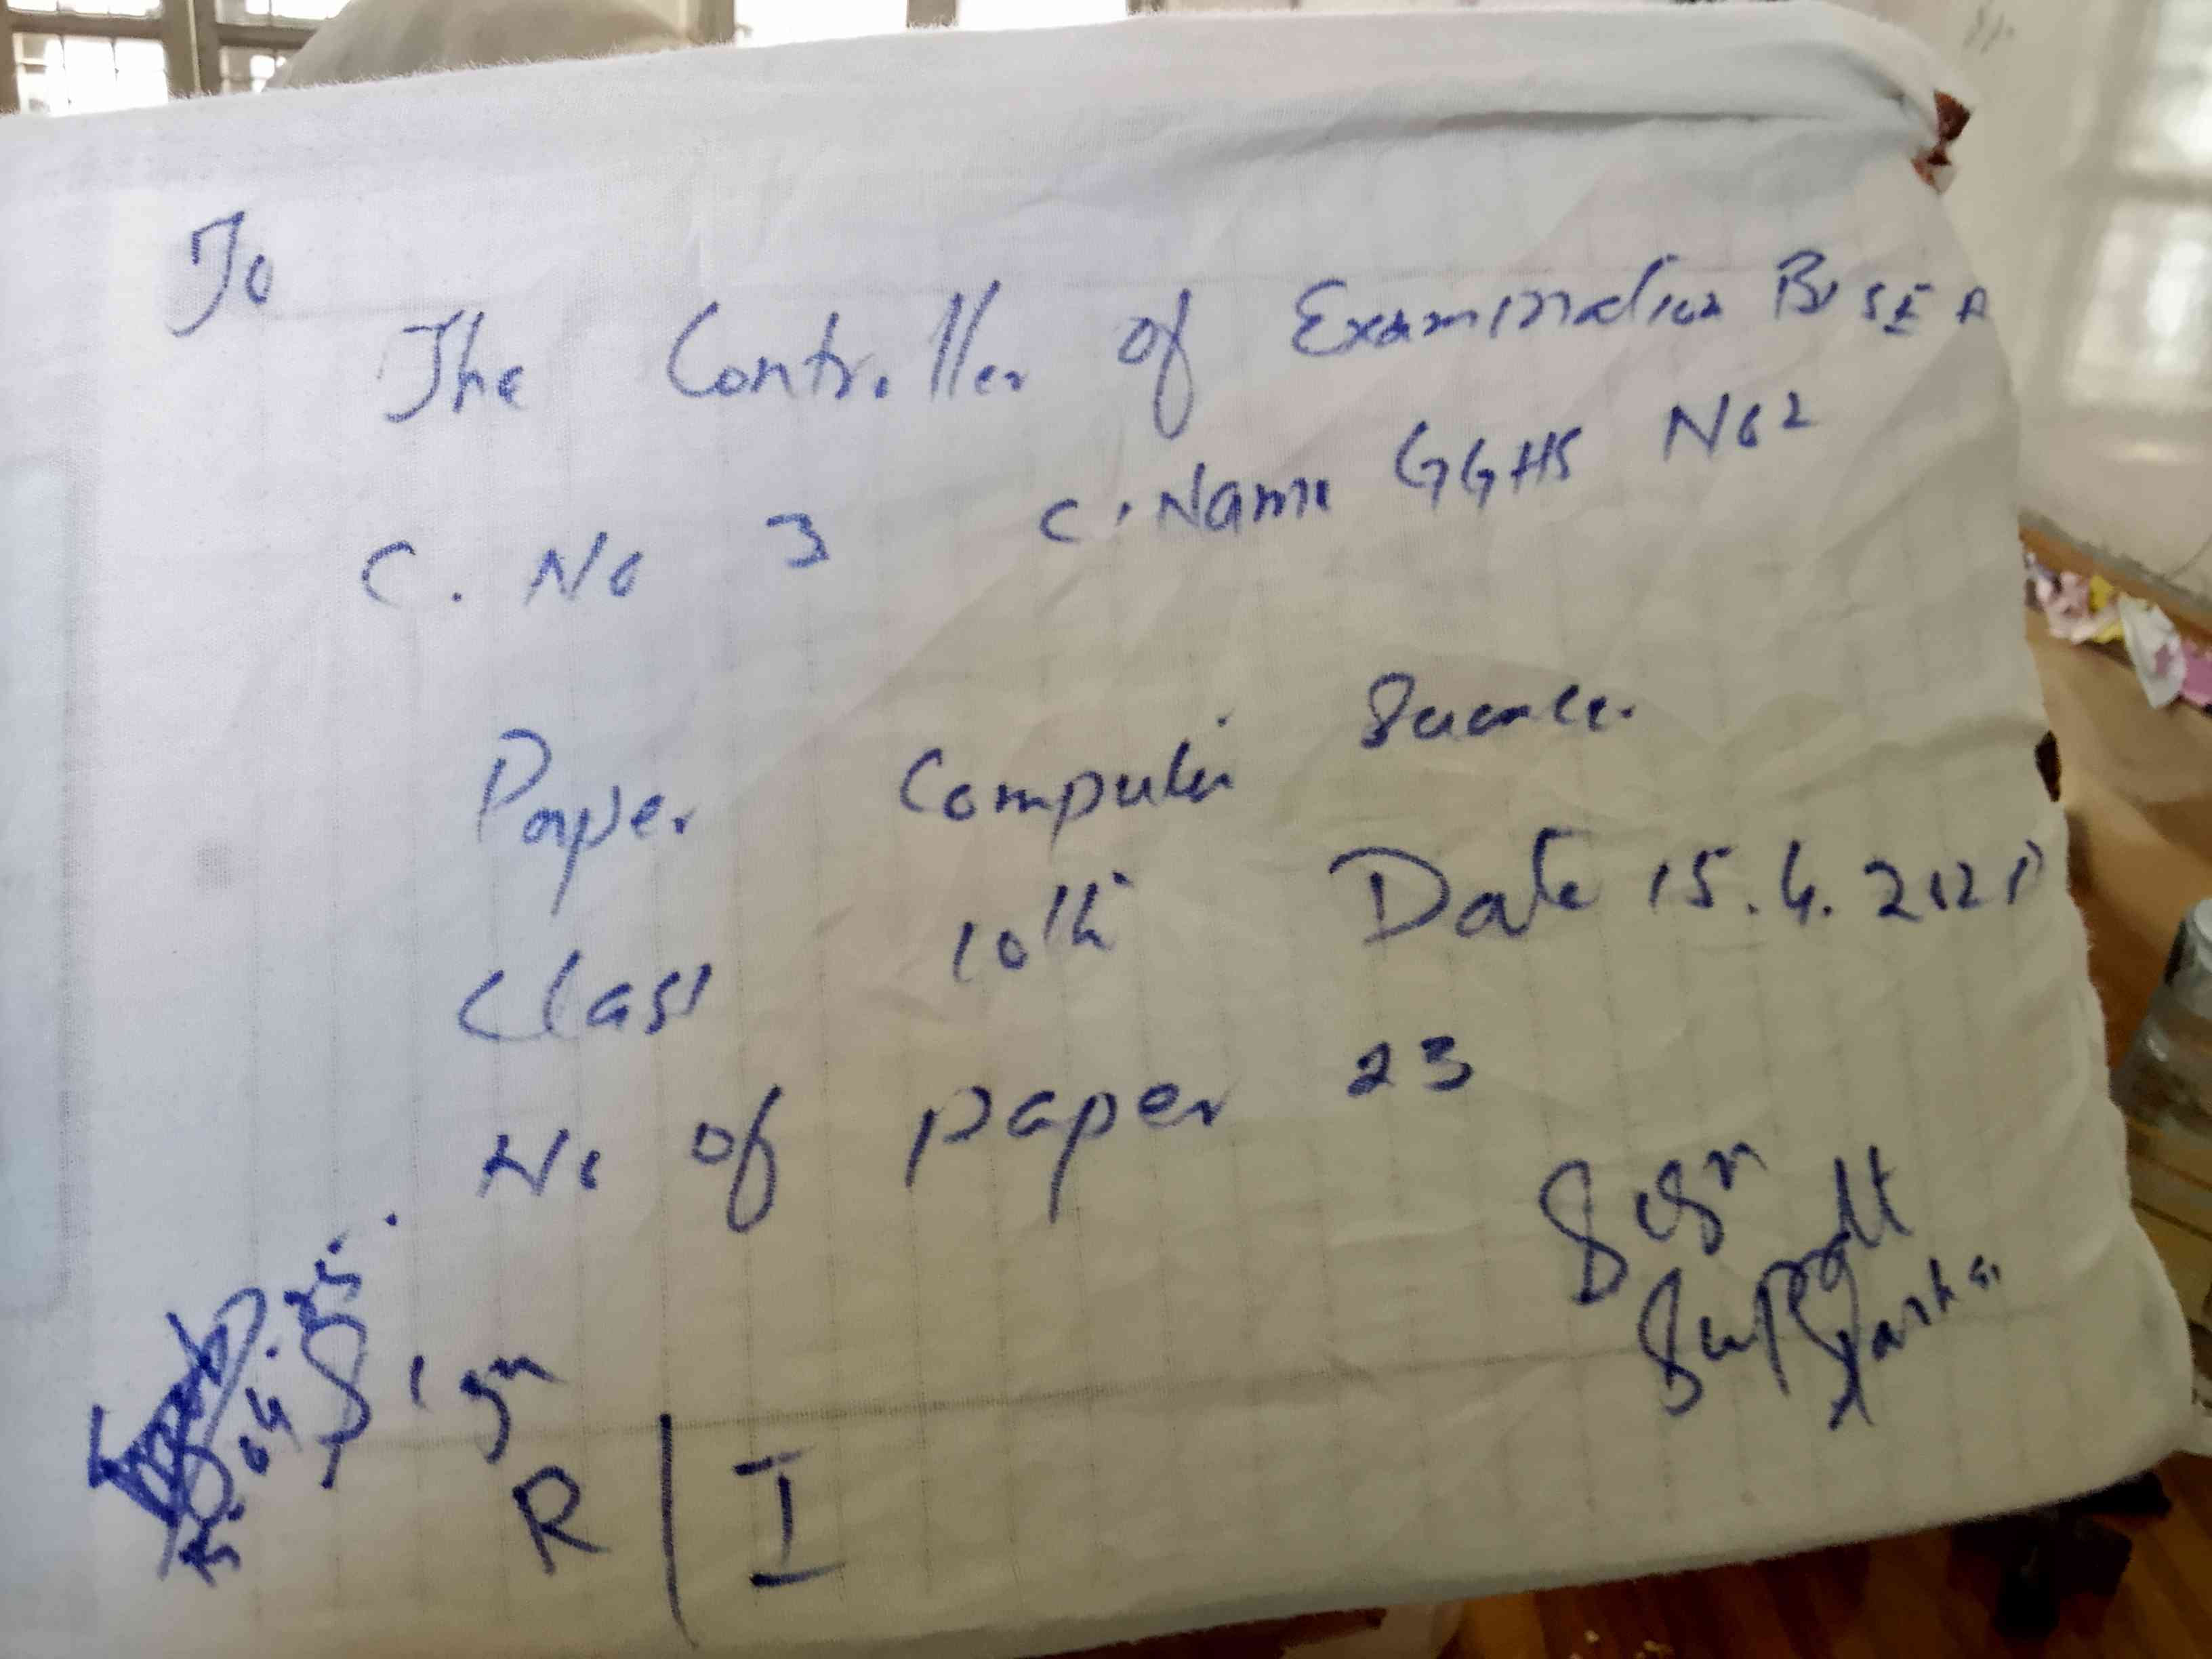 To
The Controller of Examination BISE A
C. No 3 C. Name GGHS No 2
Paper Computer Science.
Class 10th Date 15.4.
No of paper 23
Sign
Supdt
Sign
R | I